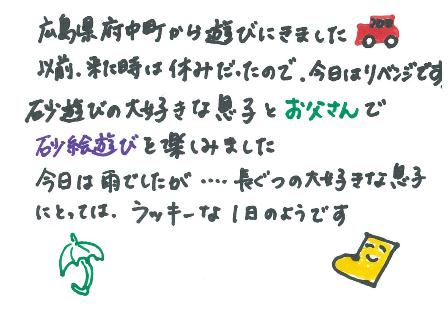 広島県府中町から遊びにきました
以前、来た時は休みだったので、今日はリベンジです
砂遊びの大好きな息子とお父さんで
砂絵遊びを楽しみました
今日は雨でしたが‥‥長ぐつの大好きな息子
にとっては、ラッキーな1日のようです